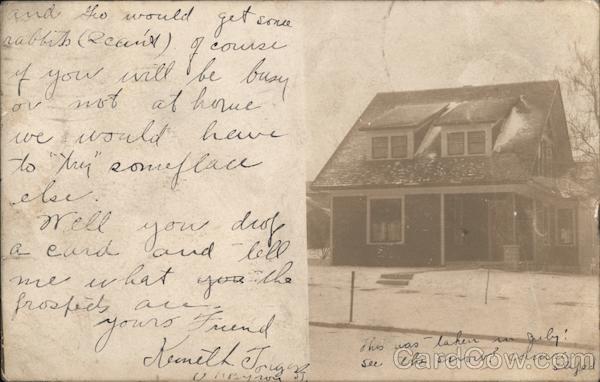 and Geo would get some
rabbits (2 can't). of course
if you will be busy
or not at home
we would have
to "try" someplace
else.
Well you drop
a card and tell
me what you the
prospects are.
yours Friend
Kenneth
This was taken in July!
see the
CardCow.com